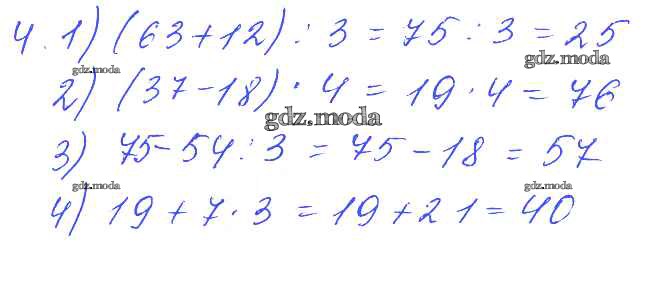 4. 1) (63+12) : 3 = 75 : 3 = 25
gdz.moda
gdz.moda
2) (37-18) · 4 = 19 · 4 = 76
gdz.moda
3) 75-54 : 3 = 75-18 = 57
gdz.moda
gdz.moda
4) 19+7·3 = 19+21 = 40